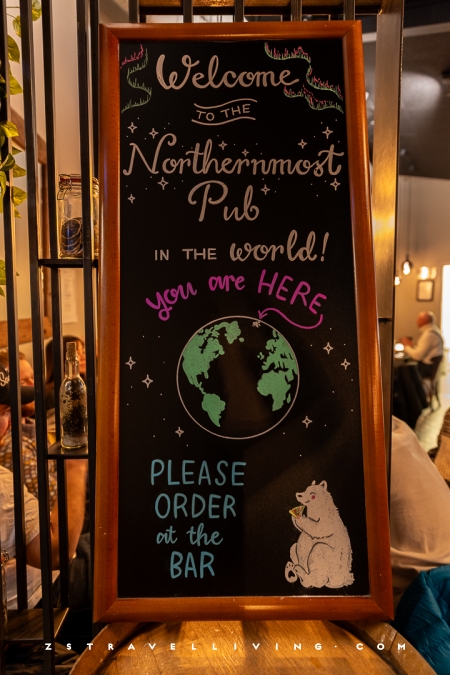 Welcome
TO THE
Northernmost
Pub
IN THE world!
you are HERE
PLEASE
ORDER
at the
BAR
ZSTRAVELLIVING.COM